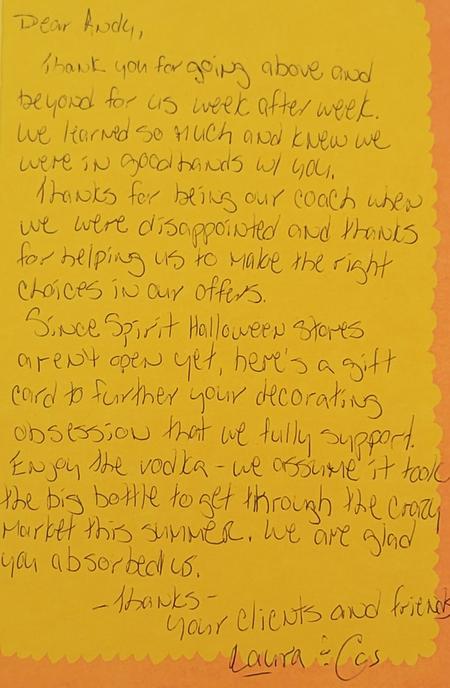 Dear Andy,
Thank you for going above and
beyond for us week after week.
We learned so much and knew we
were in good hands w/ you.
Thanks for being our coach when
we were disappointed and thanks
for helping us to make the right
choices in our offers.
Since Spirit Halloween stores
aren't open yet, here's a gift
card to further your decorating
obsession that we fully support.
Enjoy the vodka - we assume it took
the big bottle to get through the crazy
market this summer. We are glad
you absorbed us.
- Thanks -
your clients and friends
Laura & Cas